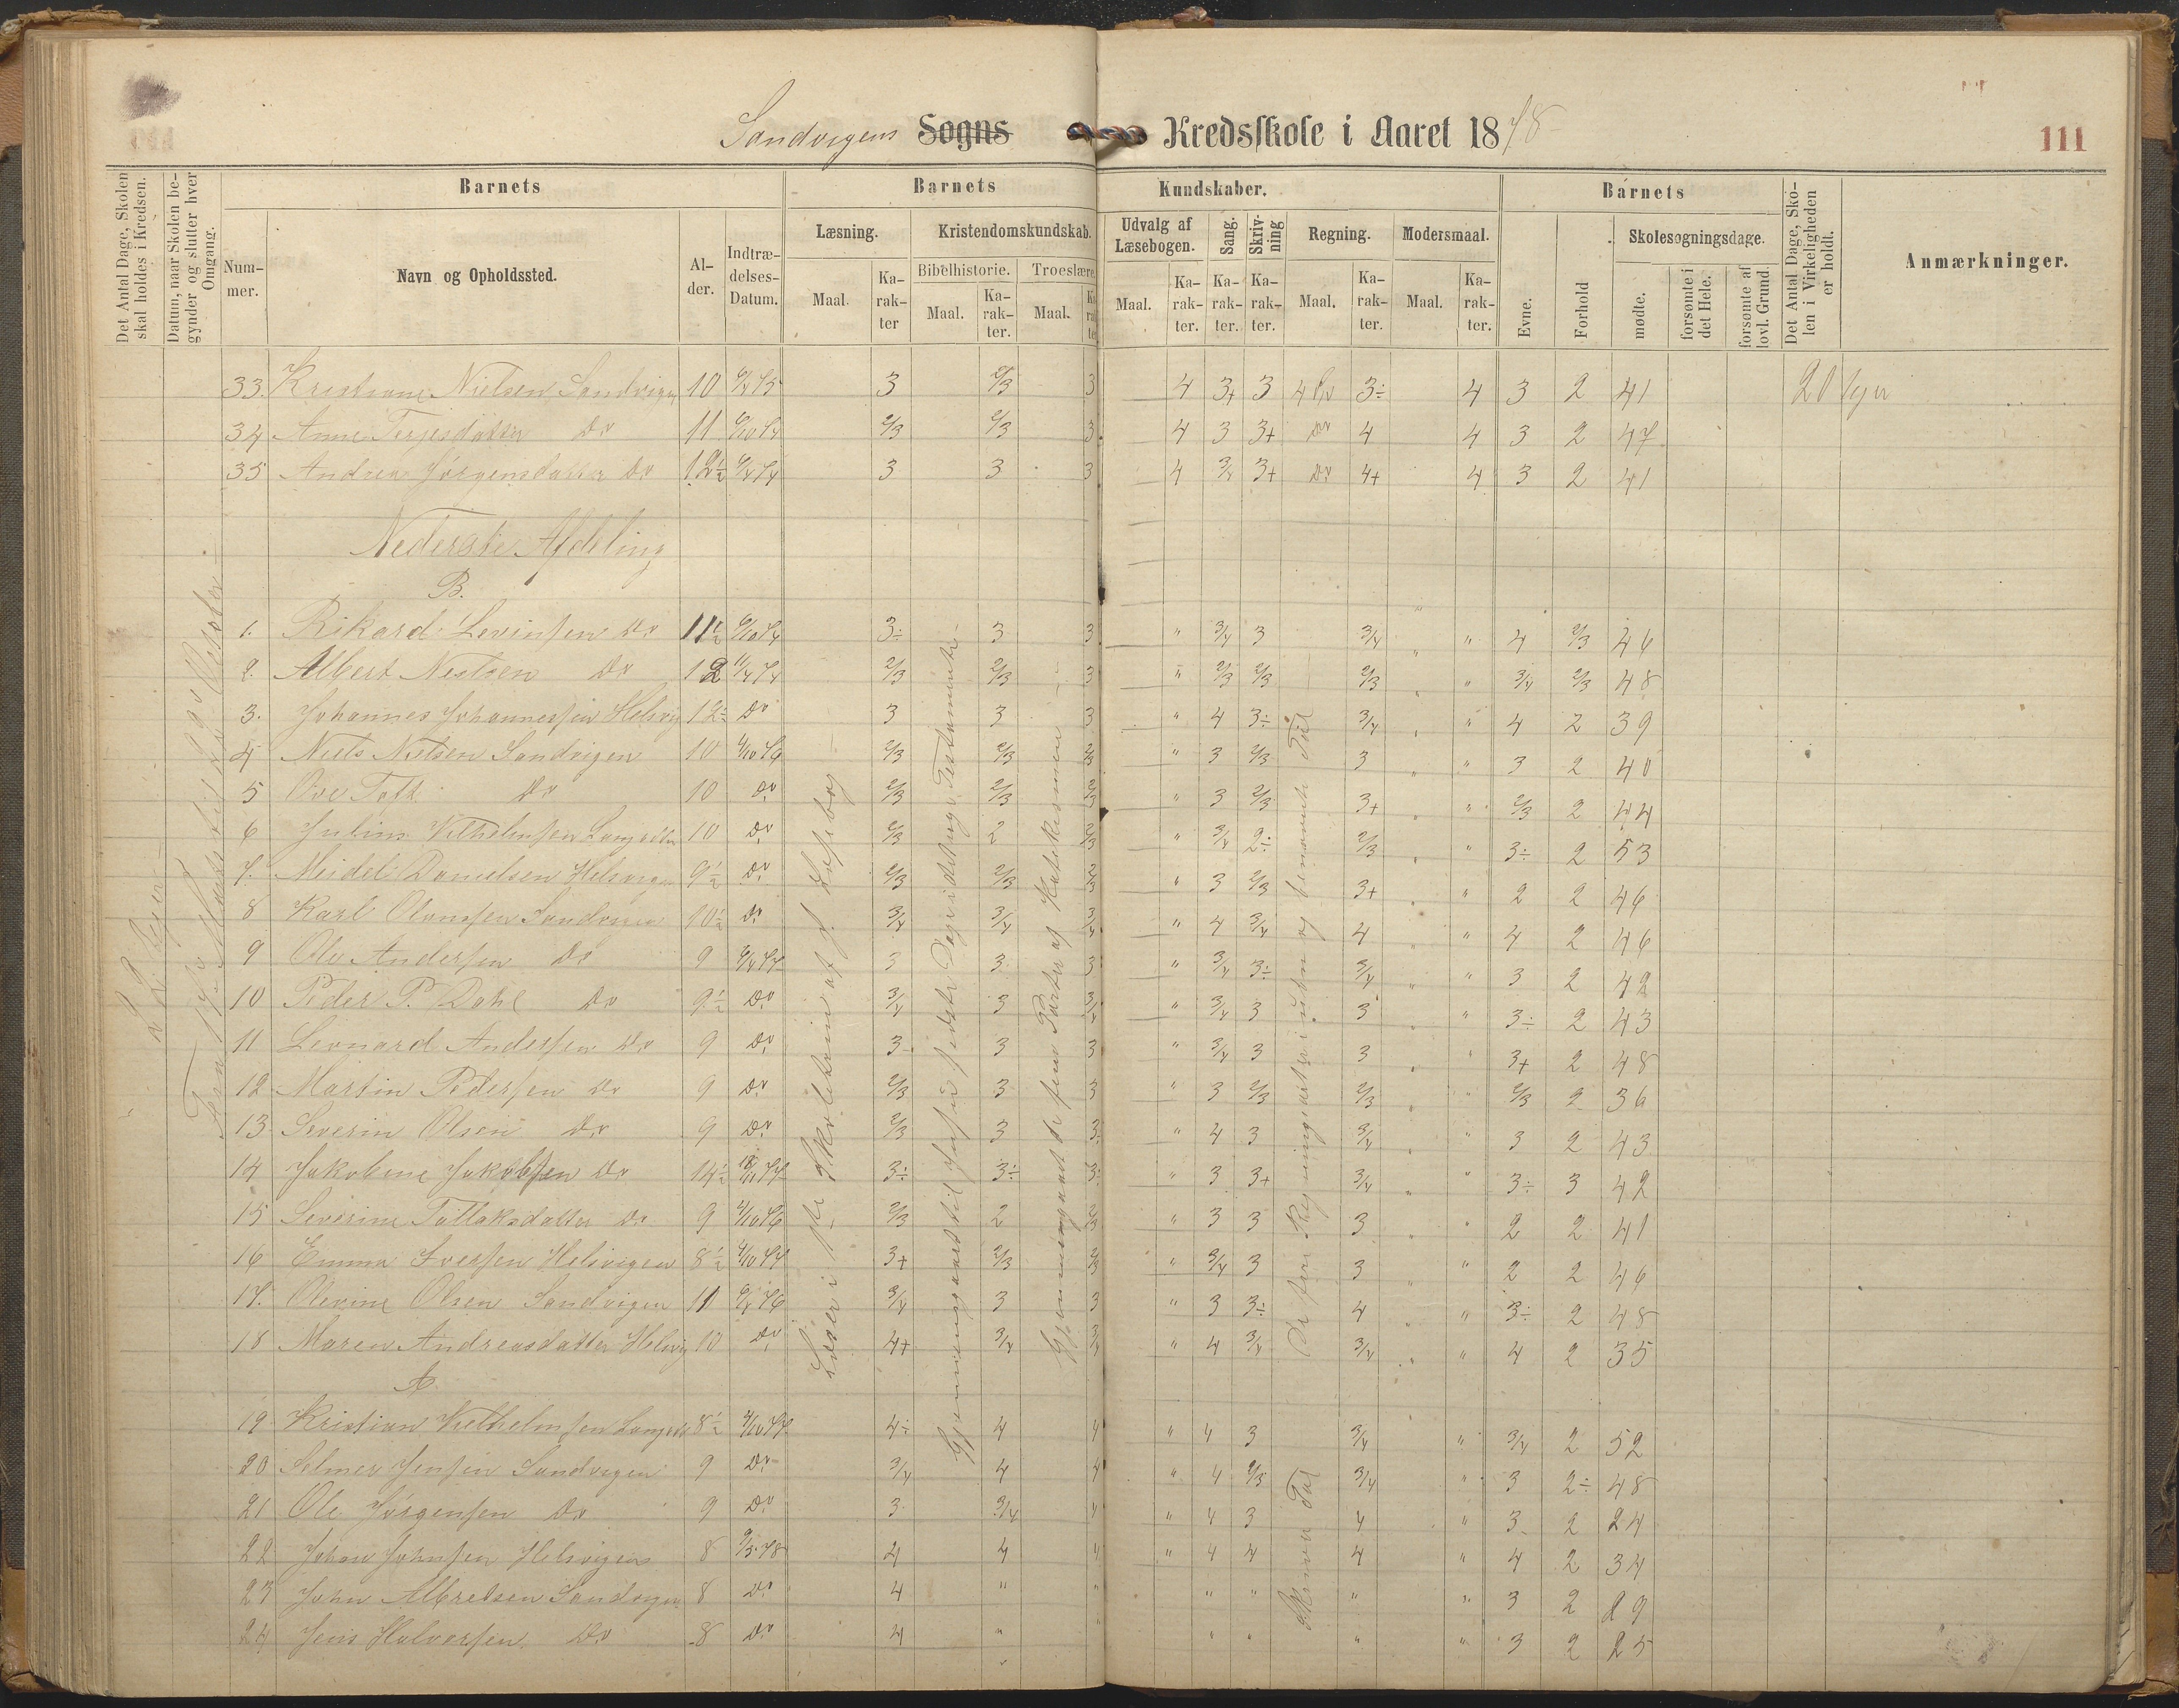 Sandvigens Sogns Kredsskole i Aaret 1878
111
Det Antal Dage, Skolen skal holdes i Kredsen.
Datum, naar Skolen begynder og slutter hver Omgang.
Barnets
Barnets Kundskaber.
Barnets
Det Antal Dage, Skolen i Virkeligheden er holdt.
Anmærkninger.
Nummer.
Navn og Opholdssted.
Alder.
Indtrædelses-Datum.
Læsning.
Kristendomskundskab.
Udvalg af Læsebogen.
Sang.
Skrivning
Regning.
Modersmaal.
Evne.
Forhold
Skolesøgningsdage.
Bibelhistorie.
Troeslære.
Maal.
Karakter
Maal.
Karakter.
Maal.
Karakter
Maal.
Karakter.
Karakter.
Karakter.
Maal.
Karakter.
Maal.
Karakter.
mødte.
forsømte i det Hele.
forsømte af lovl. Grund.
33. Kristiane Nielsen Sandvigen 10 3 2/3 3 4 3+ 3 3÷ 4 3 2 41 20 Uger
34 Anne Terjesdatter Do 11 2/3 2/3 3 4 3 3+ Do 4 4 3 2 47
35 Andrea Jørgensdatter Do 12½ 3 3 3 4 3/4 3+ Do 4+ 4 3 2 41
Nederste Afdeling
B.
1. Rikard Levinsen Do 11½ 3÷ 3 3 " 3/4 3 3/4 " 4 2/3 46
2. Albert Nielsen Do 12 2/3 2/3 3 " 2/3 2/3 2/3 " 3/4 2/3 48
3. Johannes Johannessen Helsvig 12½ Do 3 3 3 " 4 3÷ 3/4 " 4 2 39
4 Niels Nielsen Sandvigen 10 4/10 76 2/3 2/3 2/3 " 3 2/3 3 " 3 2 40
5 Ove Toft Do 10 Do 2/3 2/3 2/3 " 3 2/3 3+ " 2/3 2 44
6 Julius Vilhelmsen 10 Do 2/3 2 2/3 " 3/4 2÷ 2/3 " 3÷ 2 53
7. Meidel Danielsen Helsvigen 9½ Do 2/3 2/3 2/3 " 3 2/3 3+ " 2 2 46
8 Karl Olaussen Sandvigen 10½ Do 3/4 3/4 3/4 " 4 3/4 4 " 4 2 46
9 Ole Andersen Do 9 3 3 3 " 3/4 3÷ 3/4 " 3 2 42
10 Peder P. Dahl Do 9½ Do 3/4 3 3/4 " 3/4 3 3 " 3÷ 2 43
11 Leonard Andersen Do 9 Do 3 3 3 " 3/4 3 3 " 3+ 2 48
12 Martin Pedersen Do 9 Do 2/3 3 3 " 3 2/3 2/3 " 2/3 2 36
13 Severin Olsen Do 9 Do 2/3 3 3 " 4 3 3/4 " 3 2 43
14 Jakobine Jakobsen Do 14½ 3÷ 3÷ 3÷ " 3 3+ 3/4 " 3÷ 3 42
15 Severine Tellaksdatter Do 9 4/10 76 2/3 2 2/3 " 3 3 3 " 2 2 41
16 Emma Iversen Helsvigen 8½ 4/10 77 3+ 2/3 2/3 " 3/4 3 3 " 2 2 46
17. Olevine Olsen Sandvigen 11 3/4 3 3 " 3 3÷ 4 " 3÷ 2 48
18 Maren Andreasdatter Helsvig 10 Do 4+ 3/4 3/4 " 4 3/4 3/4 " 4 2 35
A
19 Kristian Vilhelmsen 8½ 4/10 77 4÷ 4 4 " 4 3 3/4 " 3/4 2 52
20 Selmer Jensen Sandvigen 9 Do 3/4 4 4 " 4 2/3 3/4 " 3 2÷ 48
21 Ole Jørgensen Do 9 Do 3 3/4 4 " 4 3 4 " 3 2 24
22 Johan Johnsen Helsvigen 8 4 4 4 " 4 4 4 " 4 2 34
23 John Albretsen Sandvigen 8 Do 4 " " " " " " 3 2 29
24 Jens Halvorsen Do 8 Do 4 " " " " " 3 2 25
Læser i 1ste Skoletrin af J. Læsebog
Gjennemgaaet de fem Parter af Katekismen
De fire Regningsarter i uben og benævnte Tal